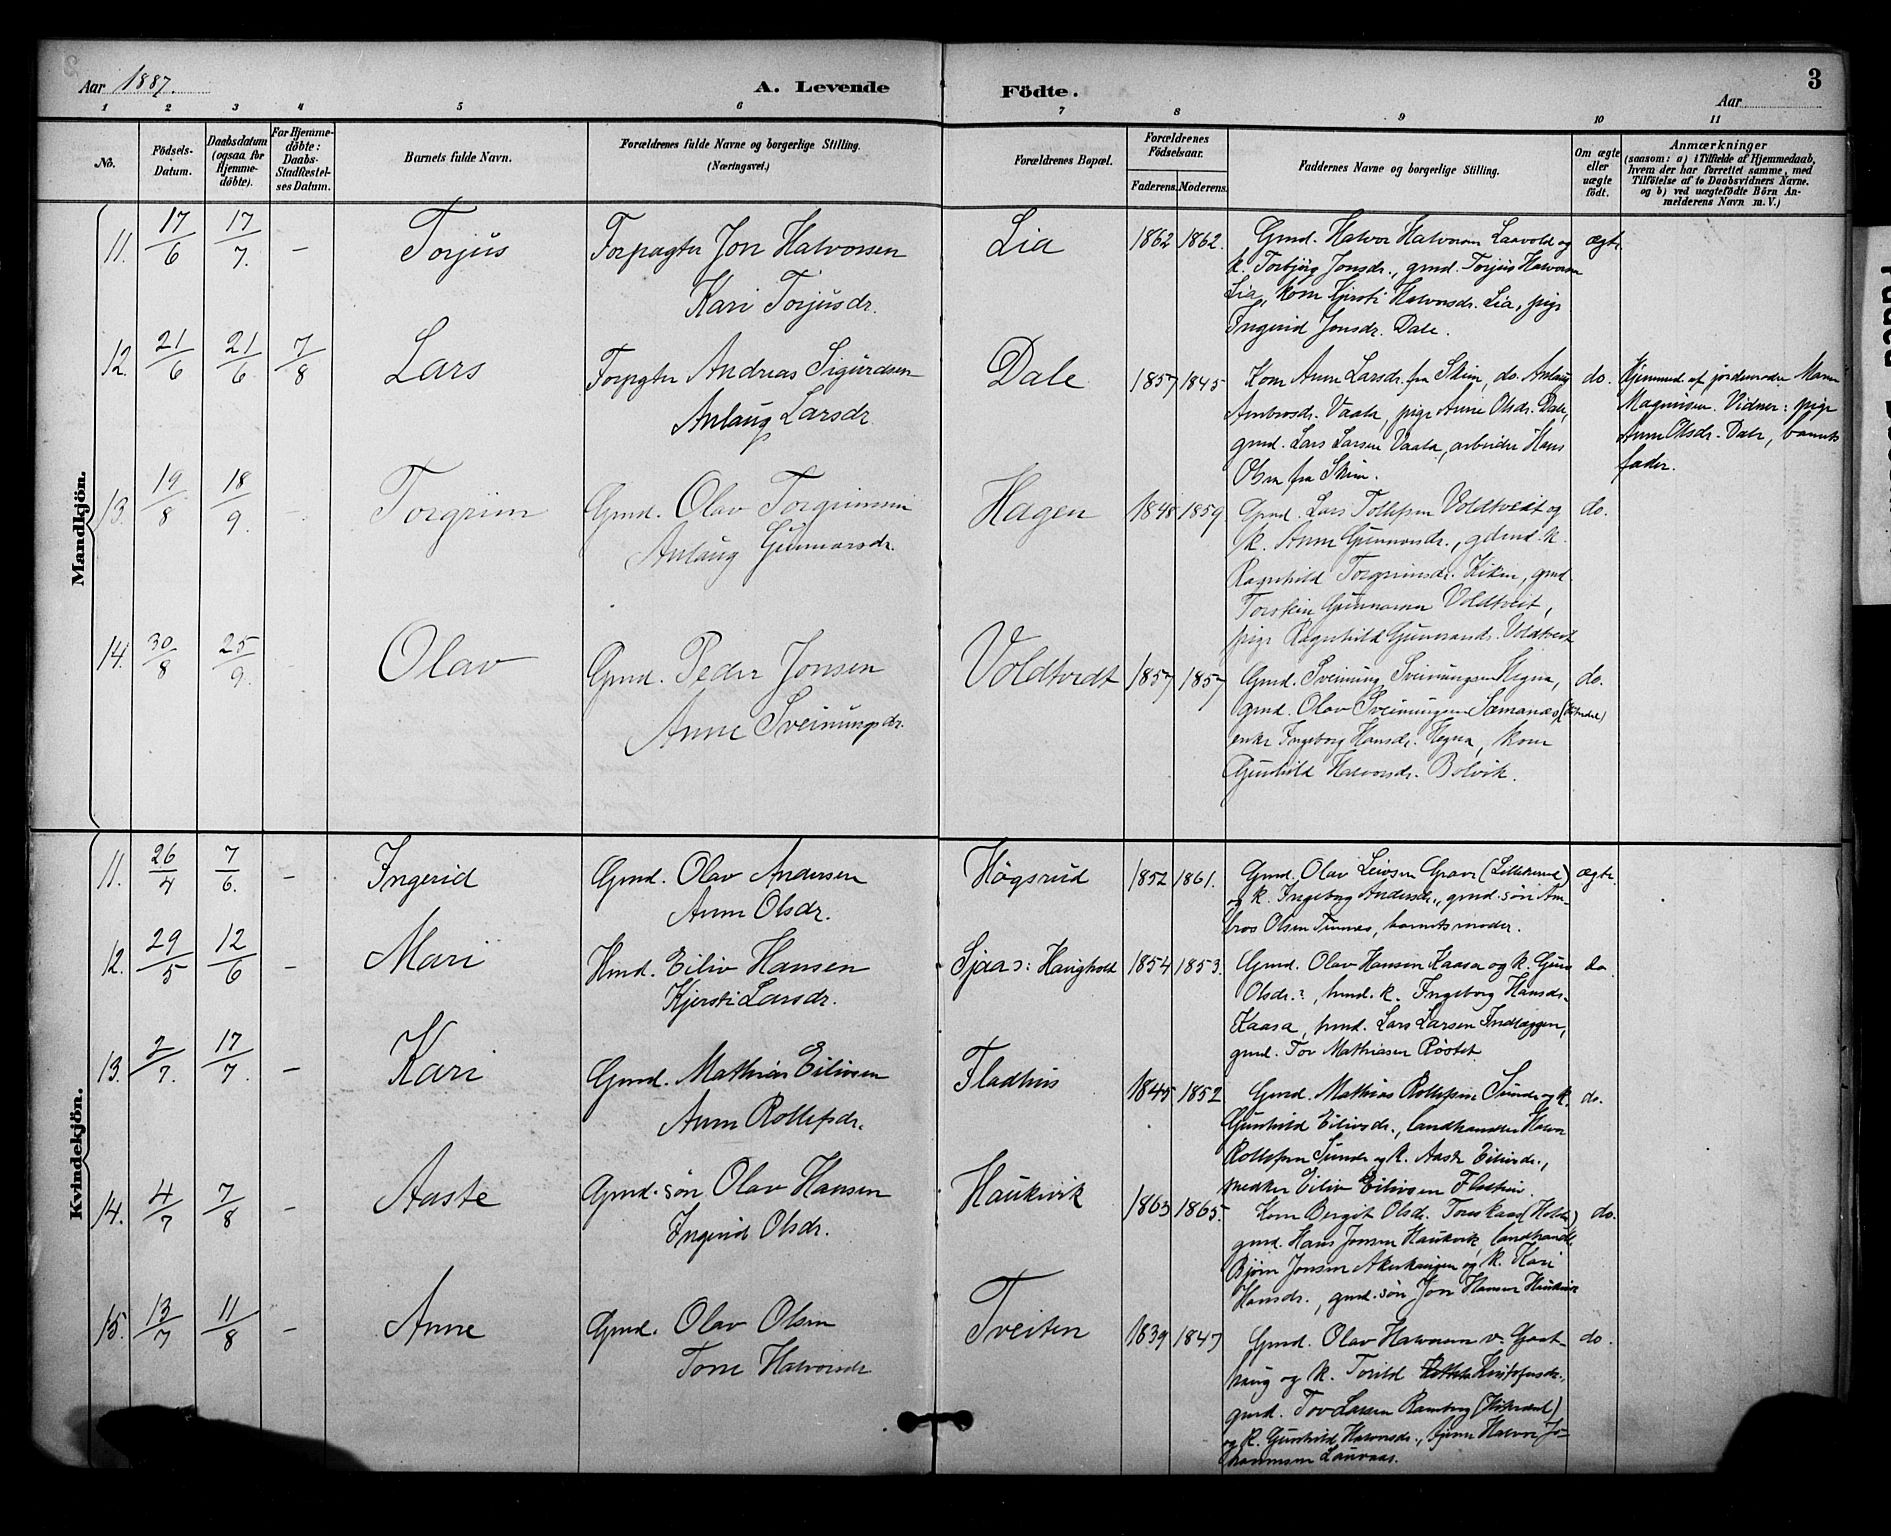 Aar 1887.
A. Levende Födte.
3
Aar
1 2 3 4 5 6 7 8 9 10 11
No.
Födsels-Datum.
Daabsdatum (ogsaa for Hjemmedöbte).
For Hjemmedöbte: Daabs-Stadfæstelses Datum.
Barnets fulde Navn.
Forældrenes fulde Navne og borgerlige Stilling. (Næringsvei.)
Forældrenes Bopæl.
Forældrenes Födselsaar.
Faderens. Moderens.
Faddernes Navne og borgerlige Stilling.
Om ægte eller uægte födt.
Anmærkninger
(saasom: a) i Tilfælde af Hjemmedaab,
hvem der har forrettet samme, med
Tilföielse af to Daabsvidners Navne.
og b) ved uægtefödte Börn An-
melderens Navn m. V.)
Mandkjön.
11. 17/6 17/7. – Torjus
Forpagter Jon Halvorsen
Kari Torjusdr.
Lia 1862 1862.
Gmd. Halvor Halvorsen Laavold og
k. Torbjörg Jonsdr., gmd. Torjus Halvorsen
Lia, kone Kirsti Halvorsdr. Lia, pige
Ingerid Jonsdr. Dale.
ægte.
12. 21/6 21/6 7/8 Lars
Forpgter Andreas Sigurdsen
Anlaug Larsdr.
Dale 1857 1845
Kone Anne Larsdr. fra Skien, do. Anlaug
Ambrosdr. Vaala, pige Anne Olsdr. Dale,
gmd. Lars Larsen Vaala, arbeider Hans
Olsen fra Skien.
do.
Hjemmed. af jordemoder Maren
Magnusen. Vidner: pige
Anne Olsdr. Dale, barnets
fader.
13. 19/8 18/9. – Torgrim
Gmd. Olav Torgrimsen
Anlaug Gunnarsdr.
Hagen 1848 1859
Gmd. Lars Tollefsen Voldtvedt og
k. Anne Gunnarsdr., gdmd. k.
Ragnhild Torgrimsdr. , gmd.
Torstein Gunnarsen Voldtveit,
pige Ragnhild Gunnarsdr. Voldtvedt
do.
14. 30/8 25/9. – Olav
Gmd. Peder Jonsen
Anne Sveinungsdr.
Voldtvedt 1857 1857
Gmd. Sveinung Sveinungsen Hegna,
gmd. Olav Sveinungsen Semanaas (Hiterdal)
enke Ingeborg Hansdr. Hegna, kone
Gunhild Halvorsdr. Bolvik.
do.
Kvindekjön.
11. 26/4 7/6. – Ingerid
Gmd. Olav Andersen
Anne Olsdr.
Högsrud 1852 1861.
Gmd. Olav Leivsen Grave (Lilleherred)
og k. Ingeborg Andersdr., gmd. sön Am-
bros Olsen Tinnes, barnets moder.
ægte.
12. 29/5 12/6 – Mari
Hmd. Eiliv Hansen
Kjersti Larsdr.
Sjaas: Haugholt 1854 1853.
Gmd. Olav Hansen Kaasa og k. Guro
Olsdr.?, hmd. k. Ingeborg Hansdr.
Kaasa, hmd. Lars Larsen Indlæggen,
gmd. Tov Mathiasen Röstet
do.
13. 2/7. 17/7. – Kari
Gmd. Mathias Eilivsen
Anne Rollefsdr.
Fladhus 1845. 1852
Gmd. Mathias Rollefsen Sunde og k.
Gunhild Eilivsdr., landhandler Halvor
Rollefsen Sunde og k. Aaste Eilivsdr.,
snedker Eiliv Eilivsen
do.
14. 4/7 7/8 – Aaste
Gmd. sön Olav Hansen
Ingerid Olsdr.
Haukvik 1863 1865.
Kone Bergit Olsdr. Torskaas (Holden)
gmd. Hans Jonsen Haukvik, landhandl.
Björn Jonsen Akerhaugen og k. Kari
Hansdr., gmd. sön Jon Hansen Haukvik
do.
15. 13/7 11/8 – Anne
Gmd. Olav Olsen
Tone Halvorsdr
Tveiten 1839 1847
Gmd. Olav Halvorsen v. Gaat-
haug og k. Torild Kristofersdr.,
gmd. Tov Larsen Ramberg (Hiterdal)
og k. Gunhild Halvorsdr., tjener Halvor Jo-
hannesen Lauvaas.
do.